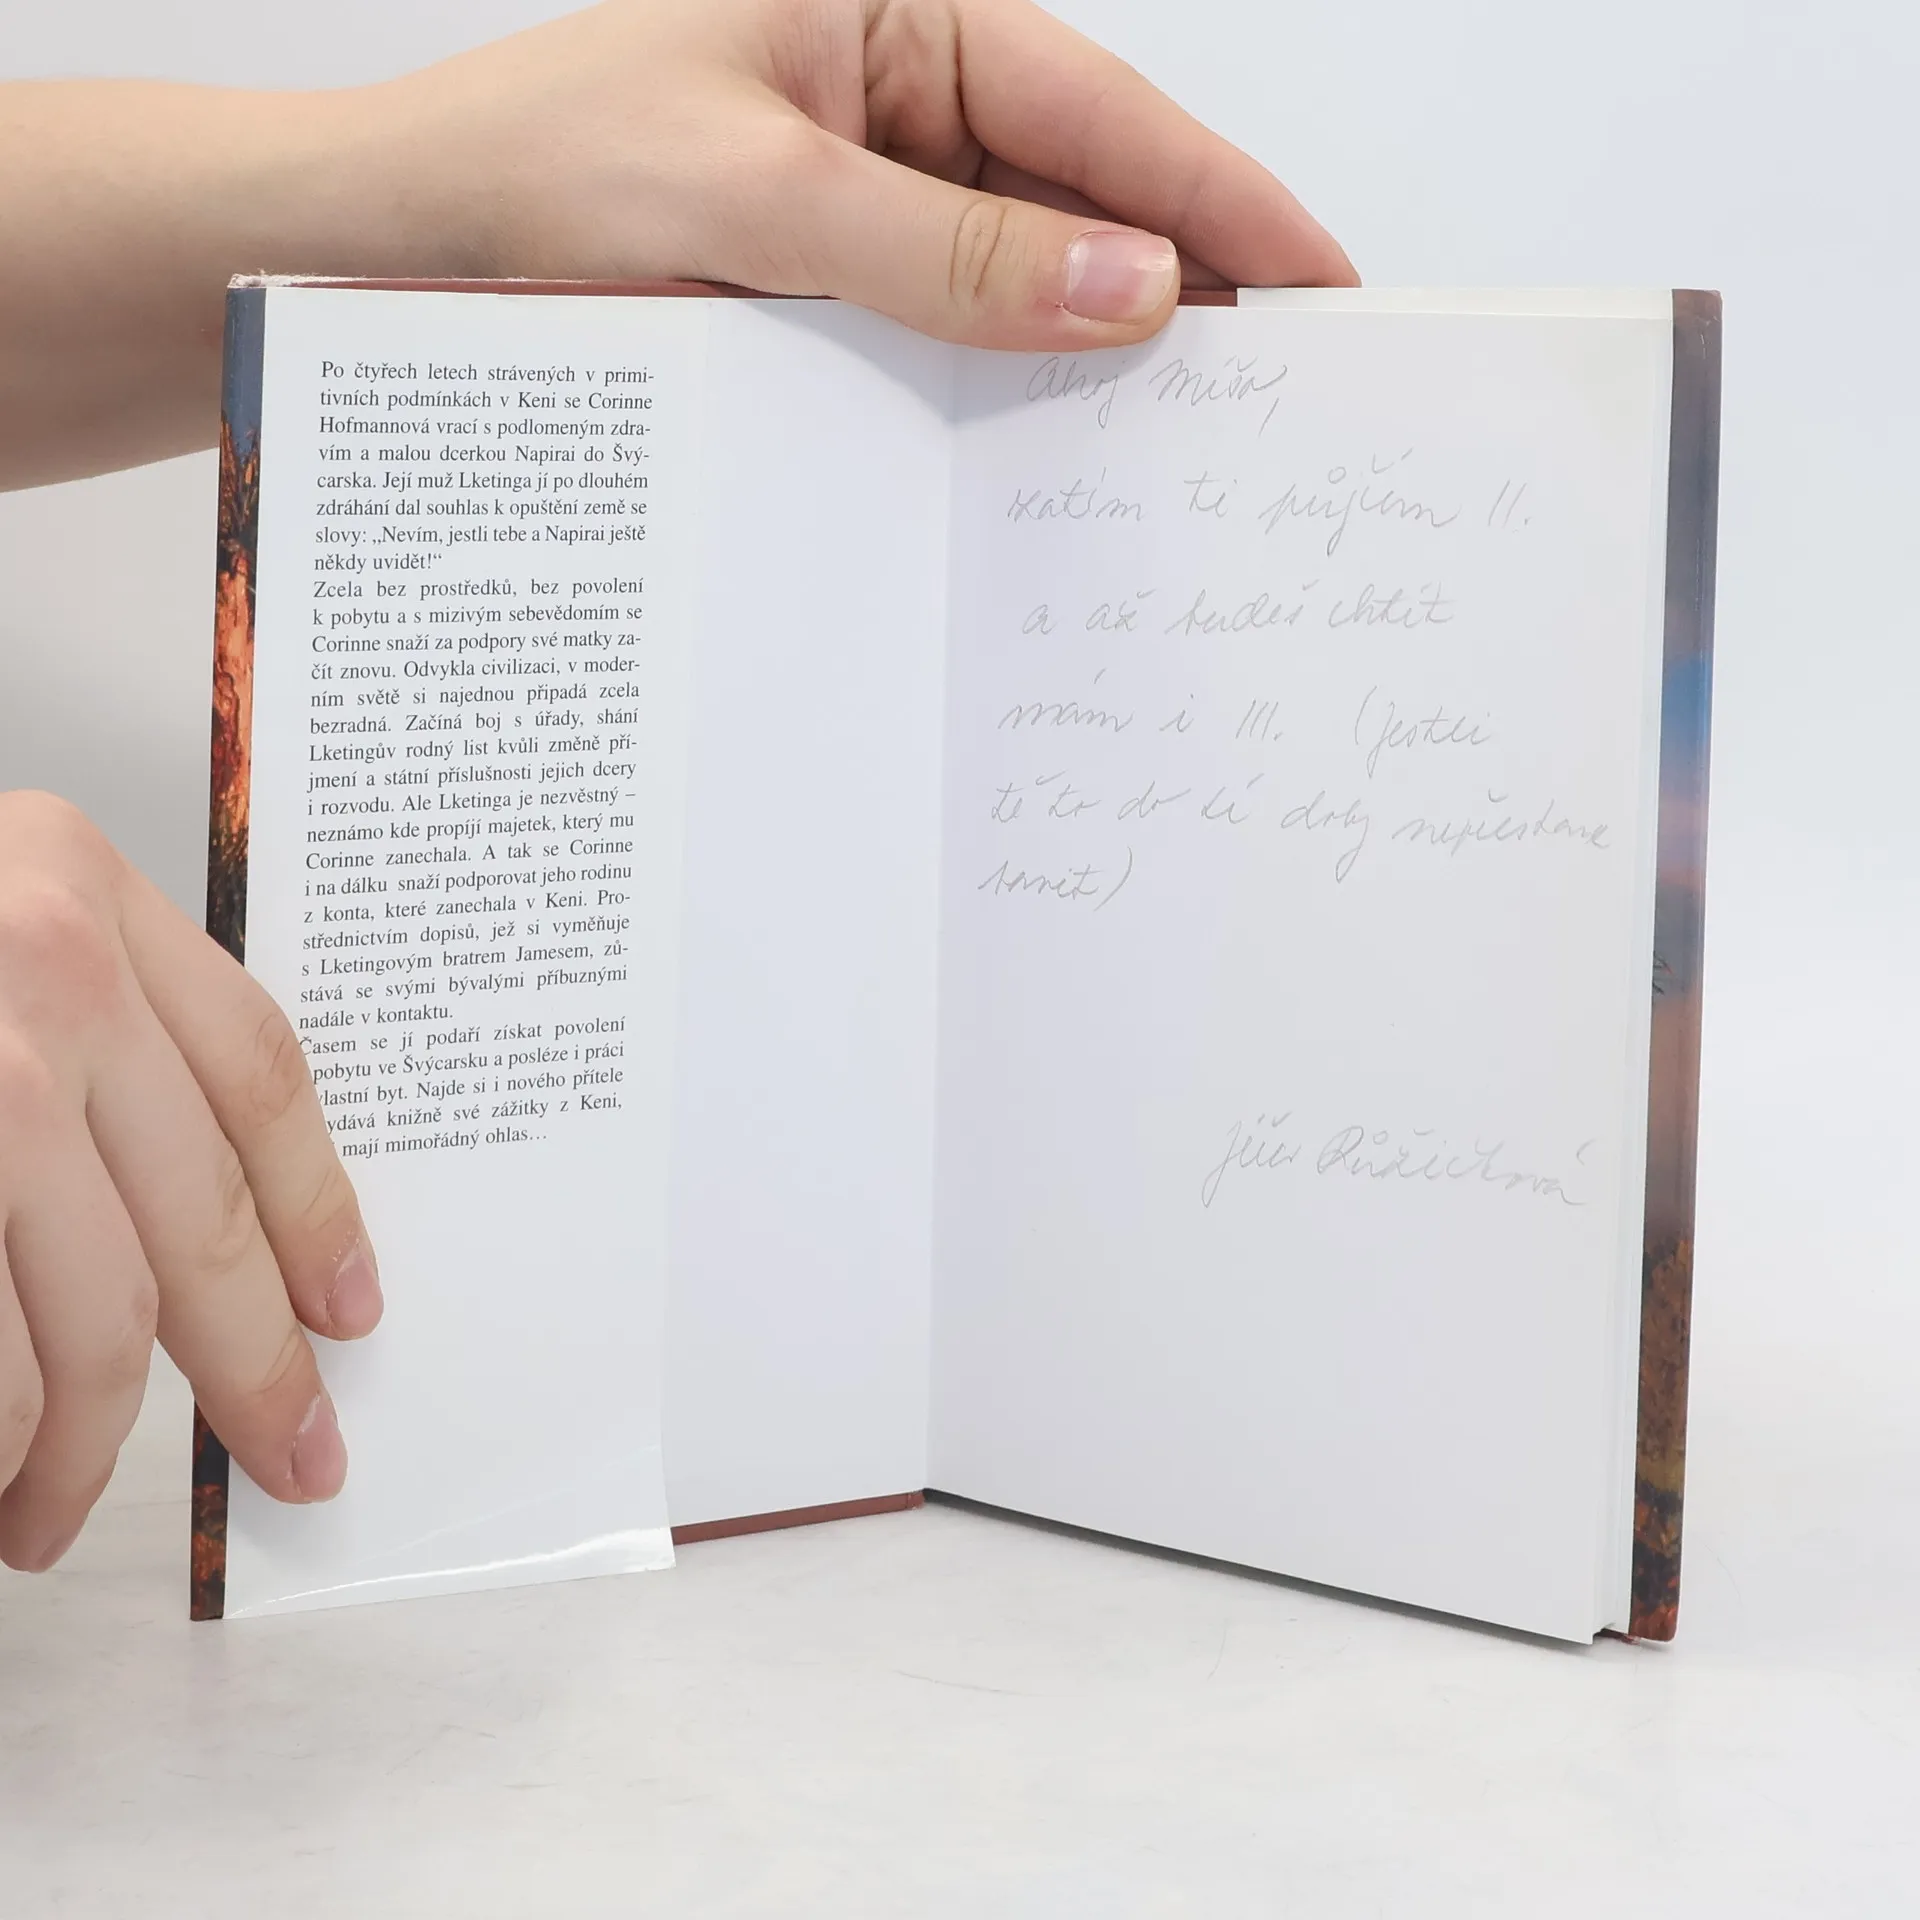 Po čtyřech letech strávených v primi-
tivních podmínkách v Keni se Corinne
Hofmannová vrací s podlomeným zdra-
vím a malou dcerkou Napirai do Švý-
carska. Její muž Lketinga jí po dlouhém
zdráhání dal souhlas k opuštění země se
slovy: „Nevím, jestli tebe a Napirai ještě
někdy uvidět!“
Zcela bez prostředků, bez povolení
k pobytu a s mizivým sebevědomím se
Corinne snaží za podpory své matky za-
čít znovu. Odvykla civilizaci, v moder-
ním světě si najednou připadá zcela
bezradná. Začíná boj s úřady, shání
Lketingův rodný list kvůli změně pří-
jmení a státní příslušnosti jejich dcery
i rozvodu. Ale Lketinga je nezvěstný –
neznámo kde propíjí majetek, který mu
Corinne zanechala. A tak se Corinne
i na dálku snaží podporovat jeho rodinu
z konta, které zanechala v Keni. Pro-
střednictvím dopisů, jež si vyměňuje
s Lketingovým bratrem Jamesem, zů-
stává se svými bývalými příbuznými
nadále v kontaktu.
Časem se jí podaří získat povolení
pobytu ve Švýcarsku a posléze i práci
vlastní byt. Najde si i nového přítele
ydává knižně své zážitky z Keni,
mají mimořádný ohlas…
Ahoj Míšo,
zatím ti půjčím II.
a až budeš chtít
mám i III. (jestli
tě to do té doby nepřestane
bavit)
Růžičková